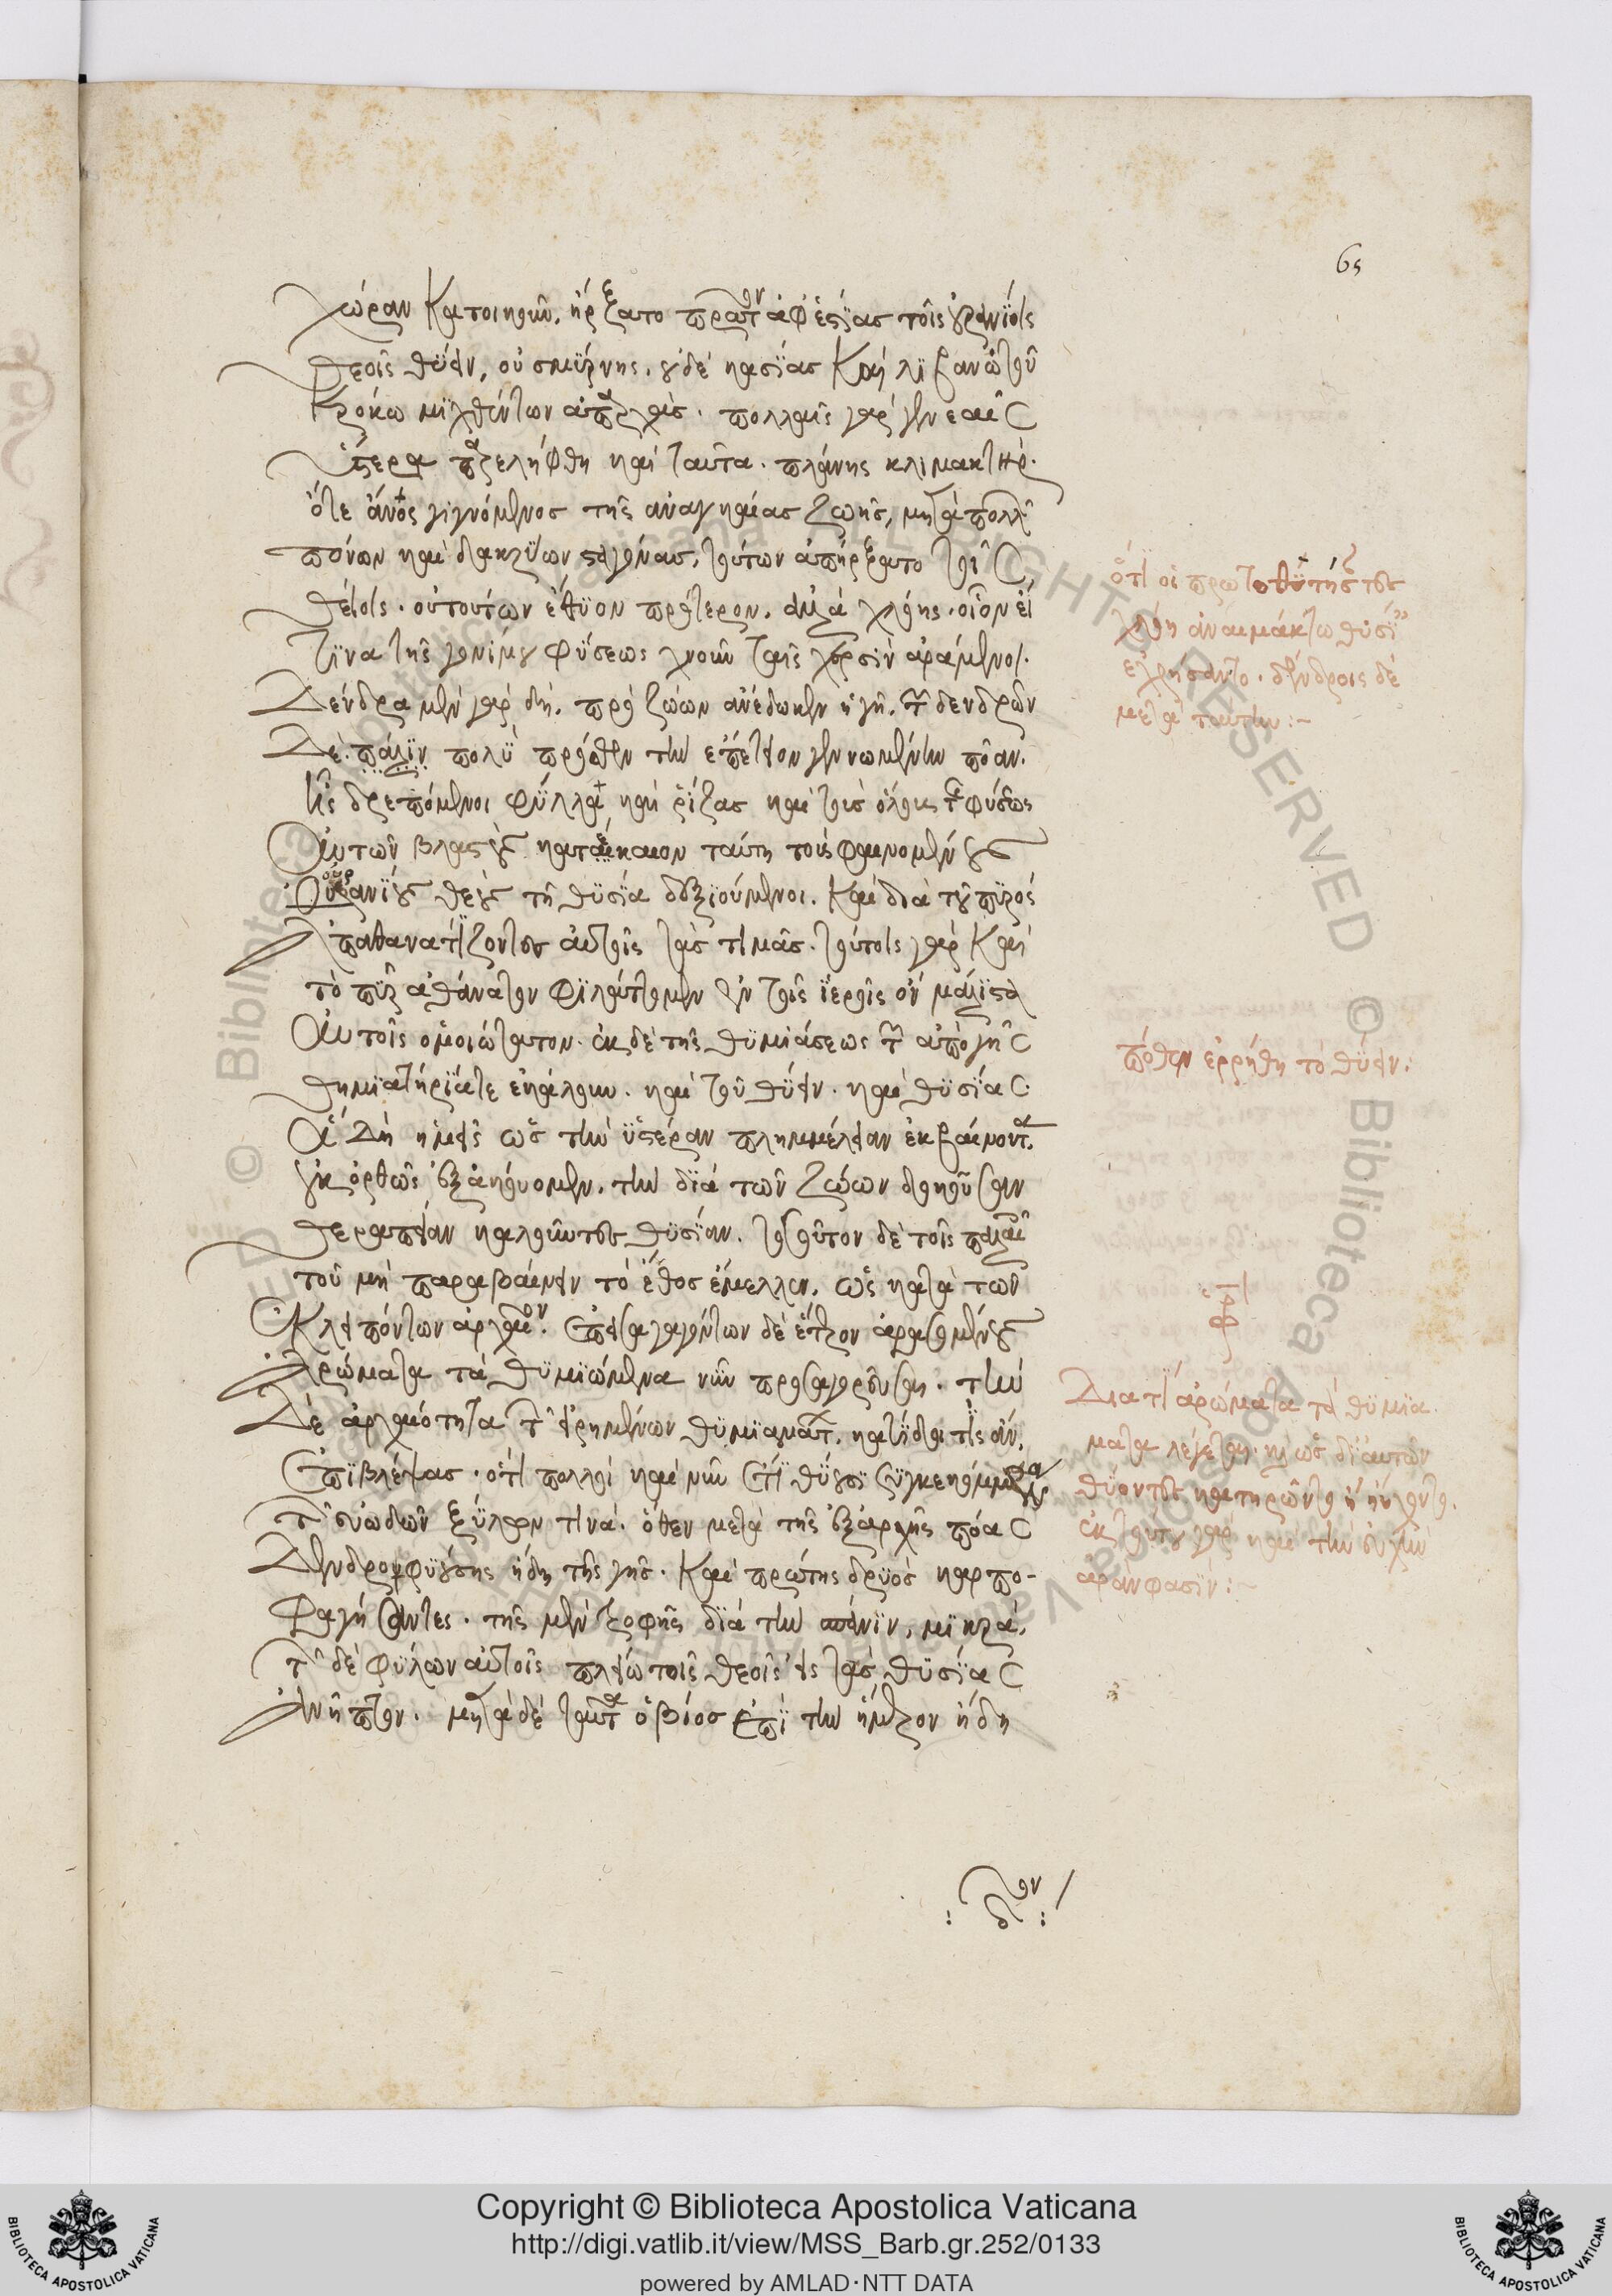 65
χώραν κατοικοῦν, ἤρξατο πρῶτον ἀφ' ἑστίας τοῖς οὐρανίοις
θεοῖς θύειν, οὐ σμύρνης, οὐδὲ κασίας καὶ λιβανωτοῦ
κρόκω μιχθέντων ἀπαρχάς. πολλαῖς γὰρ γενεαῖς
ὕστερα παρελήφθη καὶ ταῦτα. πλάνης κλιμακτὴρ.
ὅτε ἄνος γιγνόμενος τῆς ἀναγκαίας ζωῆς, μετὰ πολλῶν
πόνων καὶ δακρύων σταγόνας, τούτων ἀπήρξατο τοῖς
θεοῖς. οὐ τούτων ἔθυον πρότερον. ἀλλὰ χλόης. οἷον εἴ
τινα τῆς γονίμου φύσεως χνοῦν ταῖς χερσὶν ἀράμενοι.
Δένδρα μὲν γὰρ δὴ. πρὸ ζώων ἀνέδωκεν ἡ γῆ. τῶν δένδρων
Δὲ. πάλιν πολὺ πρόσθεν τὴν ἐπέτειον γεννωμένην πόαν.
ἧς δρεπόμενοι φύλλα καὶ ῥίζας καὶ τοὺς ὅλους τῆς φύσεως
Αὐτῶν βλαστοὺς κατέκαιον ταύτη τοὺς φαινομένους
Οὐρανίους θεοὺς τῆ θυσία δεξιούμενοι. Καὶ διὰ τοῦ πυρὸς
Ἀπαθανατίζοντες αὐτοῖς τὰς τιμάς. τούτοις γὰρ καὶ
τὸ πῦρ ἀθάνατον φυλάττομεν ἐν τοῖς ἱεροῖς ὂν μάλιστα
Αὐτοῖς ὁμοιώτατον. ἐκ δὲ τῆς θυμιάσεως τῶν ἀπὸ γῆς
θημιατήριά τε ἐκάλουν. καὶ τοῦ θύειν. καὶ θυσίας.
Ἃ δὴ ἡμεῖς ὡς τὴν ὑστέραν πλημμέλειαν ἐκβαίνοντα
οὐκ ὀρθῶς ἐξακούομεν. τὴν διὰ τῶν ζώων δοκοῦσαν
θεραπείαν καλοῦντες θυσίαν. τοσοῦτον δὲ τοῖς παλαιοῖς
τοῦ μὴ παραβαίνειν τὸ ἔθος ἔμελλεν. ὡς κατὰ τῶν
Ἐκλειπόντων ἀρχαῖον. ἐπεισαγαγόντων δὲ ἕτερον ἀρασαμένους
Ἀρώματα τὰ θυμιώμενα νῦν προσαγορεῦσαι. τὴν
Δὲ ἀρχαιότητα τῶν εἰρημένων θυμιαμάτων. κατίδοι τις ἂν,
Ἐπιβλέψας. ὅτι πολλοὶ καὶ νῦν ἔτι θύουσι συγκεκομμένα
τῶν εὐωδῶν ξύλων τινά. ὅθεν μετὰ τῆς ἐξ ἀρχῆς πόας
Δενδροφυούσης ἤδη τῆς γῆς. Καὶ πρώτης δρυὸς καρπο-
φαγήσαντες. τῆς μὲν τροφῆς διὰ τὴν σπάνιν, μικρά,
τῶν δὲ φύλλων αὐτοῖς πλείω τοῖς θεοῖς εἰς τὰς θυσίας
Ἀνῆπτον. μετὰ δὲ ταῦτα ὁ βίος ἐπὶ τὴν ἥμερον ἤδη
ὅτι οἱ πρῶτοι θύτης τες
χλόη ἀναιμάκτω θυσία
ἐχρήσαντο. δένδροις δὲ
μετὰ ταύτην:-
πόθεν ἐρρήθη τὸ θύειν:
Διατί ἀρώματα τὰ θυμιά-
ματα λέγεται. καὶ ὡς δι' αὐτῶν
θύοντες κατηρῶντο ἢ ηὔχοντο.
ἐκ τούτου γὰρ καὶ τὴν εὐχὴν
ἀρὰν φασίν:-
Copyright © Biblioteca Apostolica Vaticana
http://digi.vatlib.it/view/MSS_Barb.gr.252/0133
powered by AMLAD·NTT DATA
BIBLIOTECA APOSTOLICA VATICANA
BIBLIOTECA APOSTOLICA VATICANA